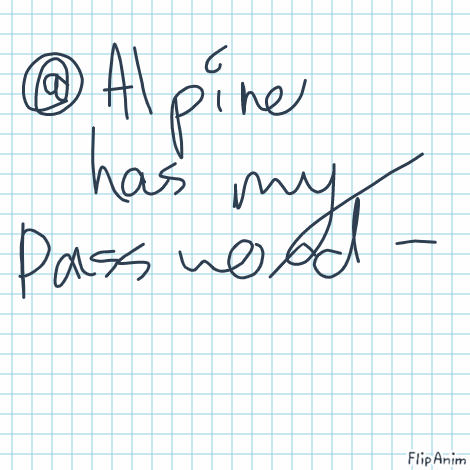 @Alpine
has my
password -
FlipAnim